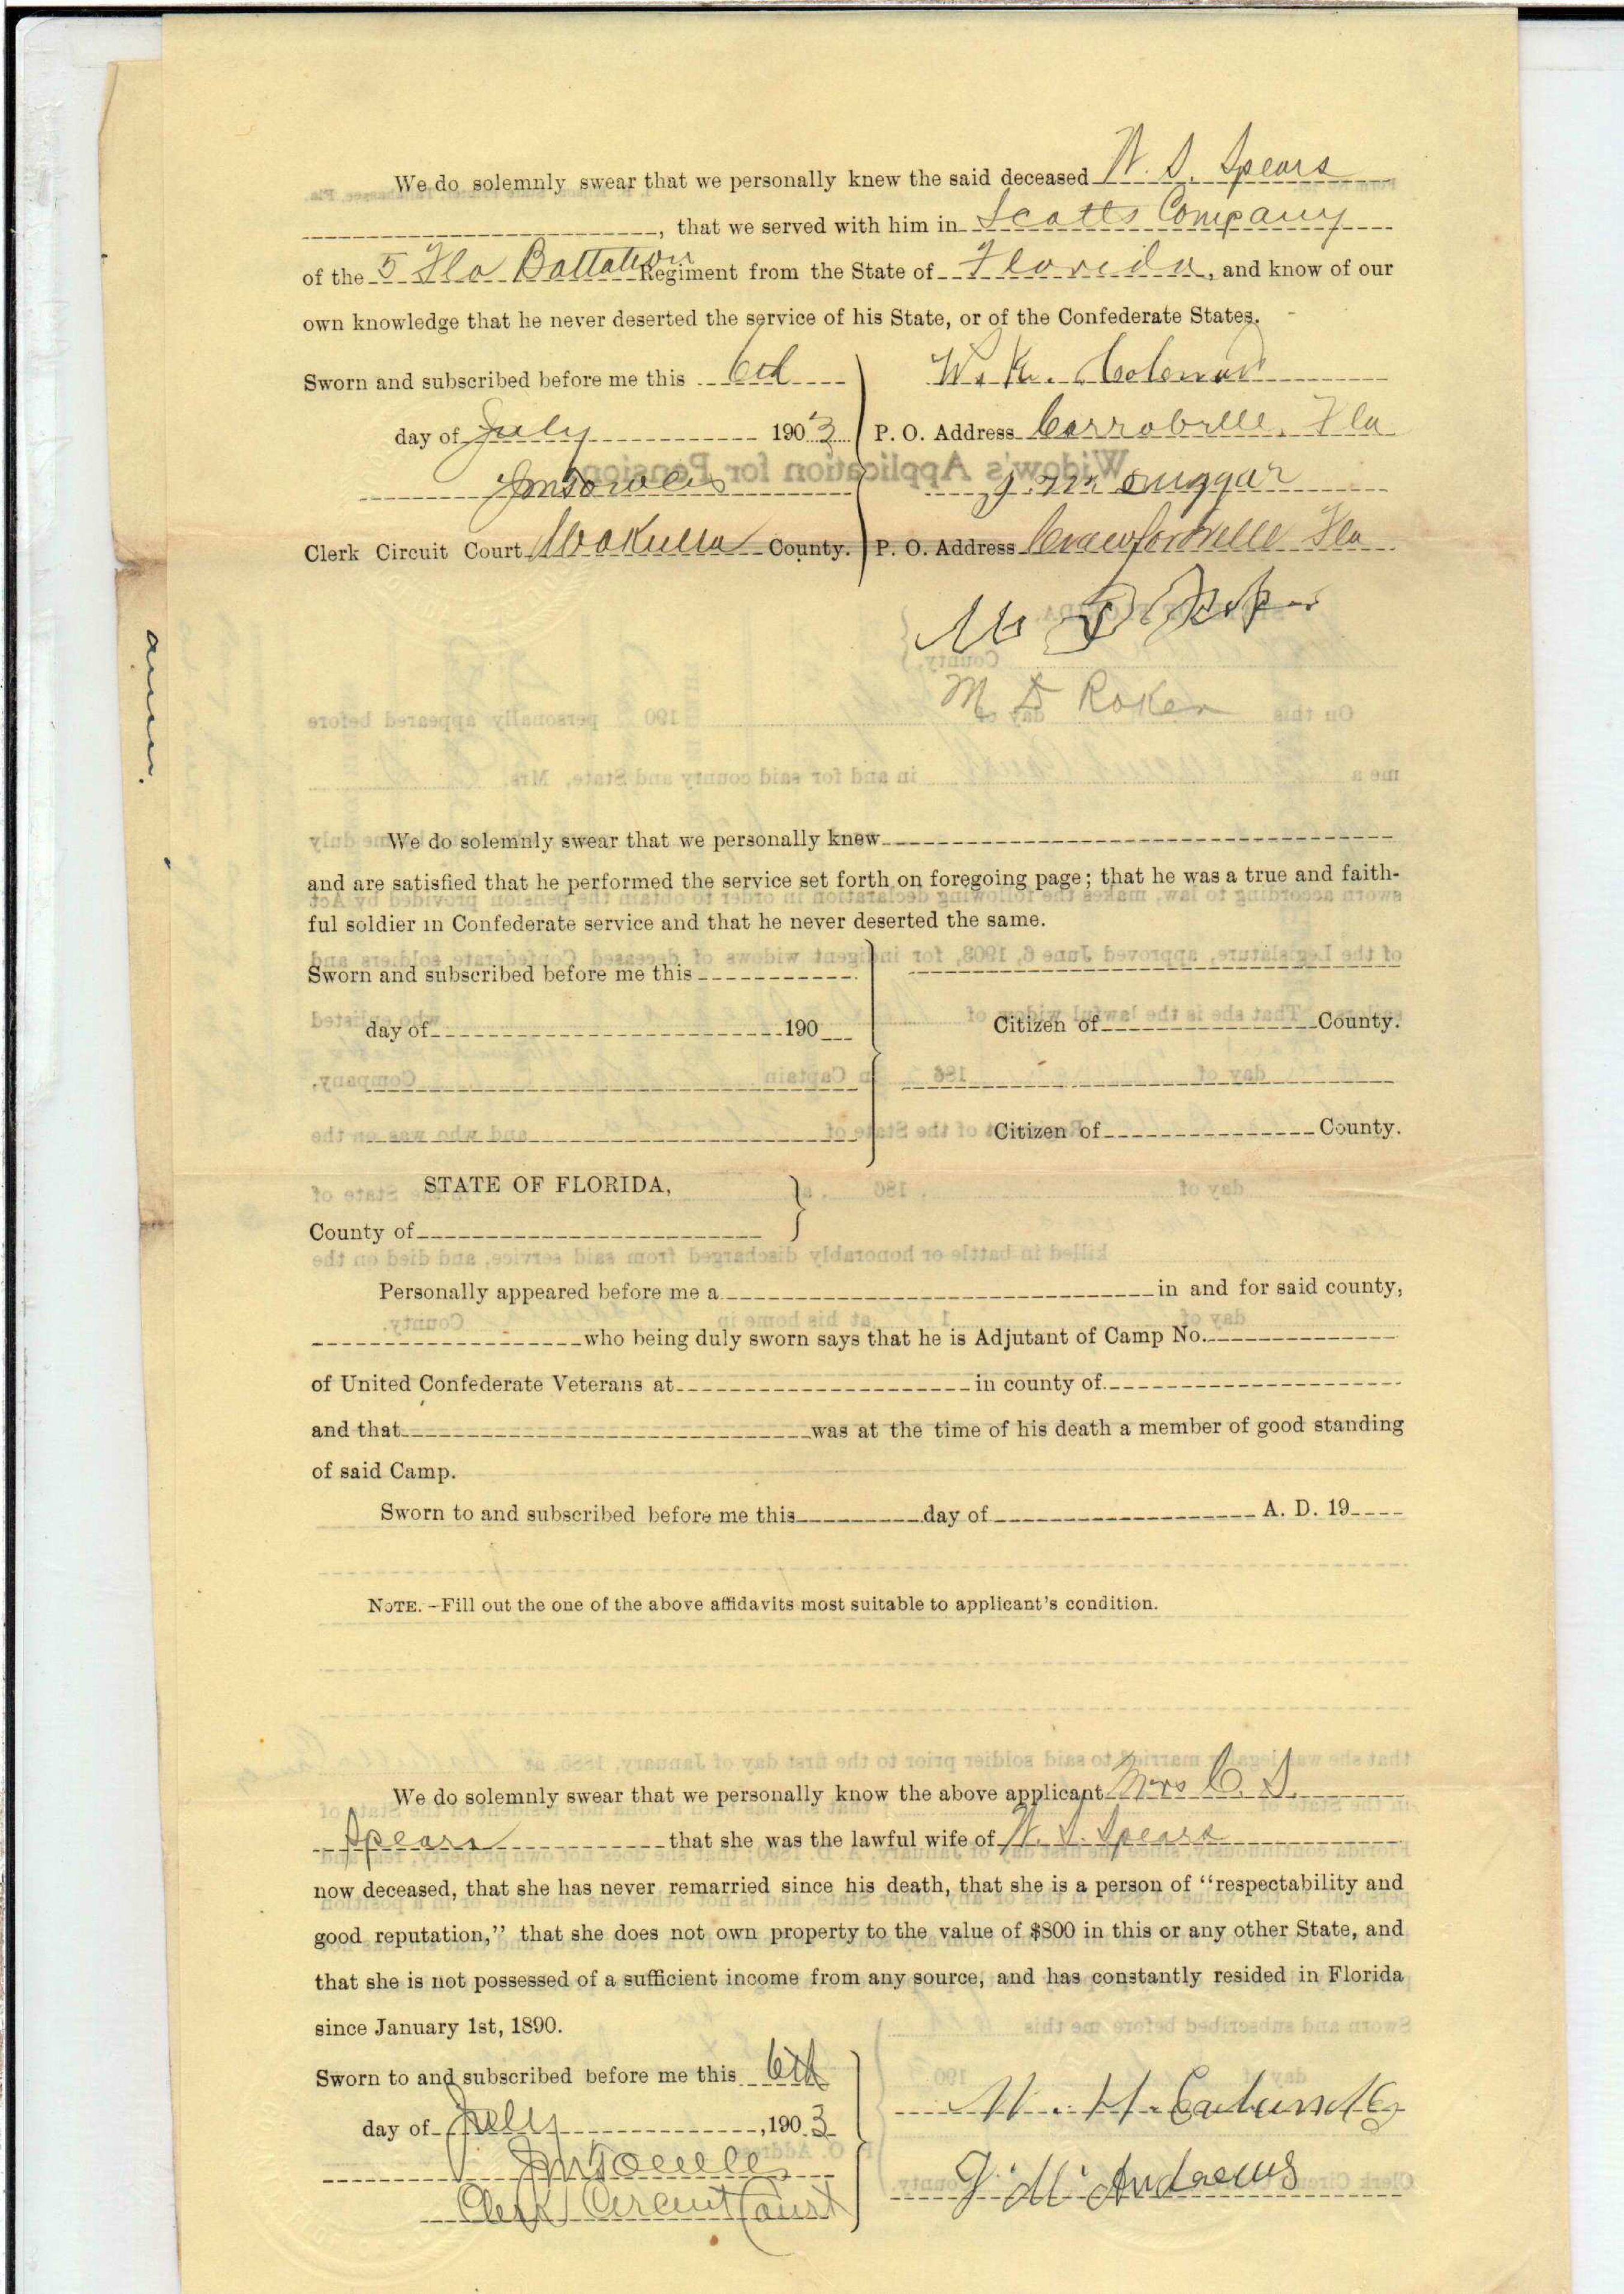 We do solemnly swear that we personally knew the said deceased W. S. Spears
, that we served with him in Scotts Company
of the 5 Fla Battalion Regiment from the State of Florida, and know of our
own knowledge that he never deserted the service of his State, or of the Confederate States.
Sworn and subscribed before me this 6th
day of July 1903
Clerk Circuit Court Wakulla County.
W. R.
P. O. Address Carrabelle, Fla
J. M. Duggar
P. O. Address Crawfordville Fla
M D Roker
amm.
We do solemnly swear that we personally knew
and are satisfied that he performed the service set forth on foregoing page; that he was a true and faith-
ful soldier in Confederate service and that he never deserted the same.
Sworn and subscribed before me this
day of 190
Citizen of County.
Citizen of County.
STATE OF FLORIDA,
County of
Personally appeared before me a in and for said county,
who being duly sworn says that he is Adjutant of Camp No.
of United Confederate Veterans at in county of
and that was at the time of his death a member of good standing
of said Camp.
Sworn to and subscribed before me this day of A. D. 19
NOTE.—Fill out the one of the above affidavits most suitable to applicant's condition.
We do solemnly swear that we personally know the above applicant Mrs C. S.
Spears that she was the lawful wife of W. S. Spears
now deceased, that she has never remarried since his death, that she is a person of "respectability and
good reputation," that she does not own property to the value of $800 in this or any other State, and
that she is not possessed of a sufficient income from any source, and has constantly resided in Florida
since January 1st, 1890.
Sworn to and subscribed before me this 6th
day of July, 1903
Clerk Circuit Court
W. H.
J. M. Andrews